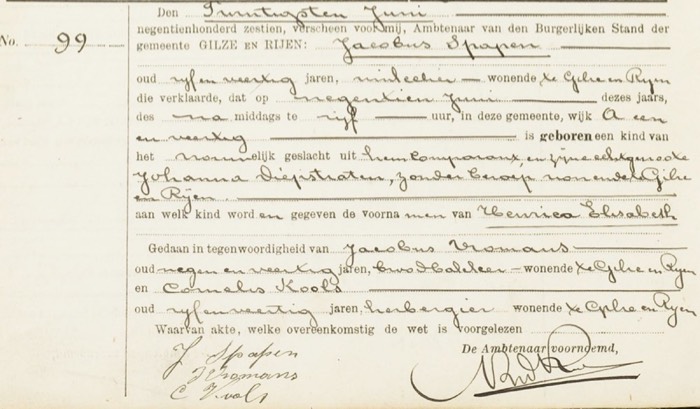 Den Twintigsten Juni
negentienhonderd zestien, verscheen voor mij, Ambtenaar van den Burgerlijken Stand der
No. 99
gemeente GILZE EN RIJEN: Jacobus Spapen
oud vijf en veertig jaren, winkelier wonende te Gilze en Rijen
die verklaarde, dat op negentien Juni dezes jaars,
des na middags te vijf uur, in deze gemeente, wijk A een
en veertig is geboren een kind van
het vrouwelijk geslacht uit hem Comparant, en zijne echtgenoote
Johanna Diepstraten, zonder beroep wonende te Gilze
en Rijen
aan welk kind worden gegeven de voornamen van Henrica Elisabeth
Gedaan in tegenwoordigheid van Jacobus Vromans
oud negen en veertig jaren, broodbakker wonende te Gilze en Rijen
en Cornelis Kools
oud vijf en veertig jaren, herbergier wonende te Gilze en Rijen
Waarvan akte, welke overeenkomstig de wet is voorgelezen
De Ambtenaar voornoemd,
J Spapen
J Vromans
C Kools